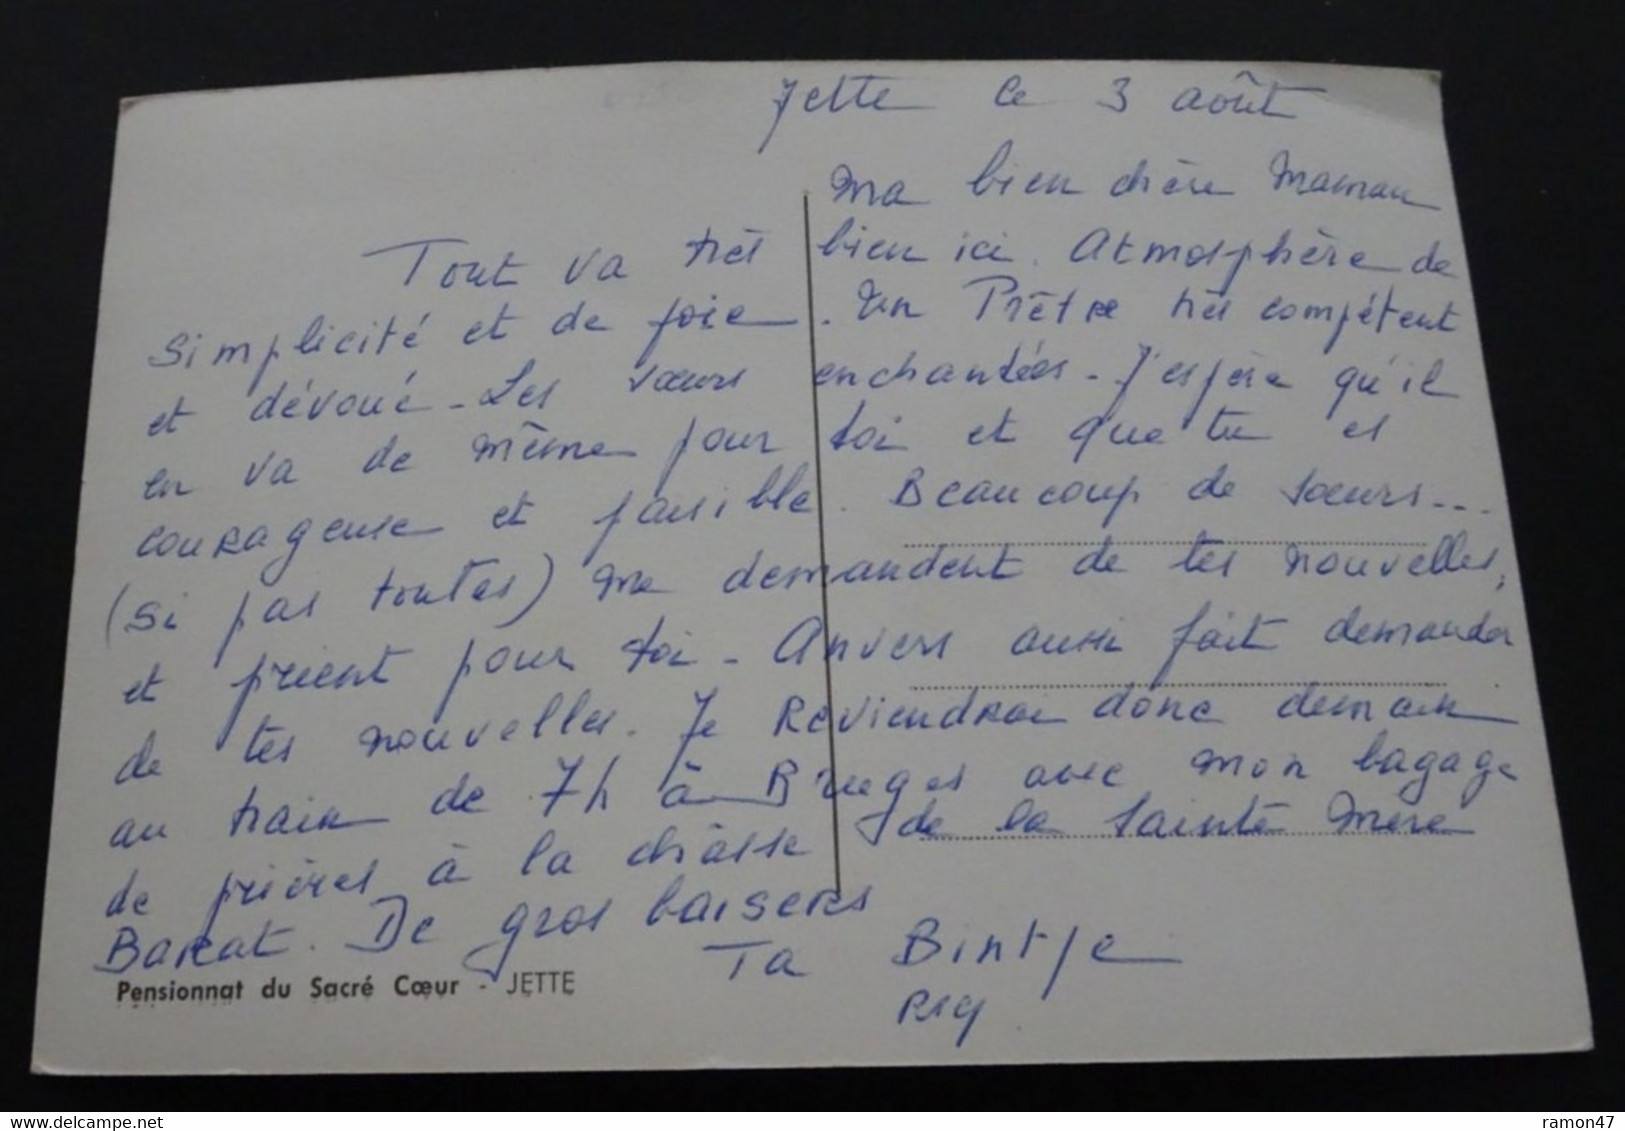 Jette le 3 août
Ma bien chère Maman
Tout va très bien ici. Atmosphère de
simplicité et de joie. Un Prêtre très compétent
et dévoué - Les sœurs enchantées - J'espère qu'il
en va de même pour toi et que tu es
courageuse et paisible. Beaucoup de sœurs...
(si pas toutes) me demandent de tes nouvelles,
et prient pour toi - Anvers aussi fait demander
de tes nouvelles. Je reviendrai donc demain
au train de 7h à Bruges avec mon bagage
de prières à la châsse de la Sainte Mère
Barat. De gros baisers
Ta Bintje
Pensionnat du Sacré Cœur - JETTE
ramon47